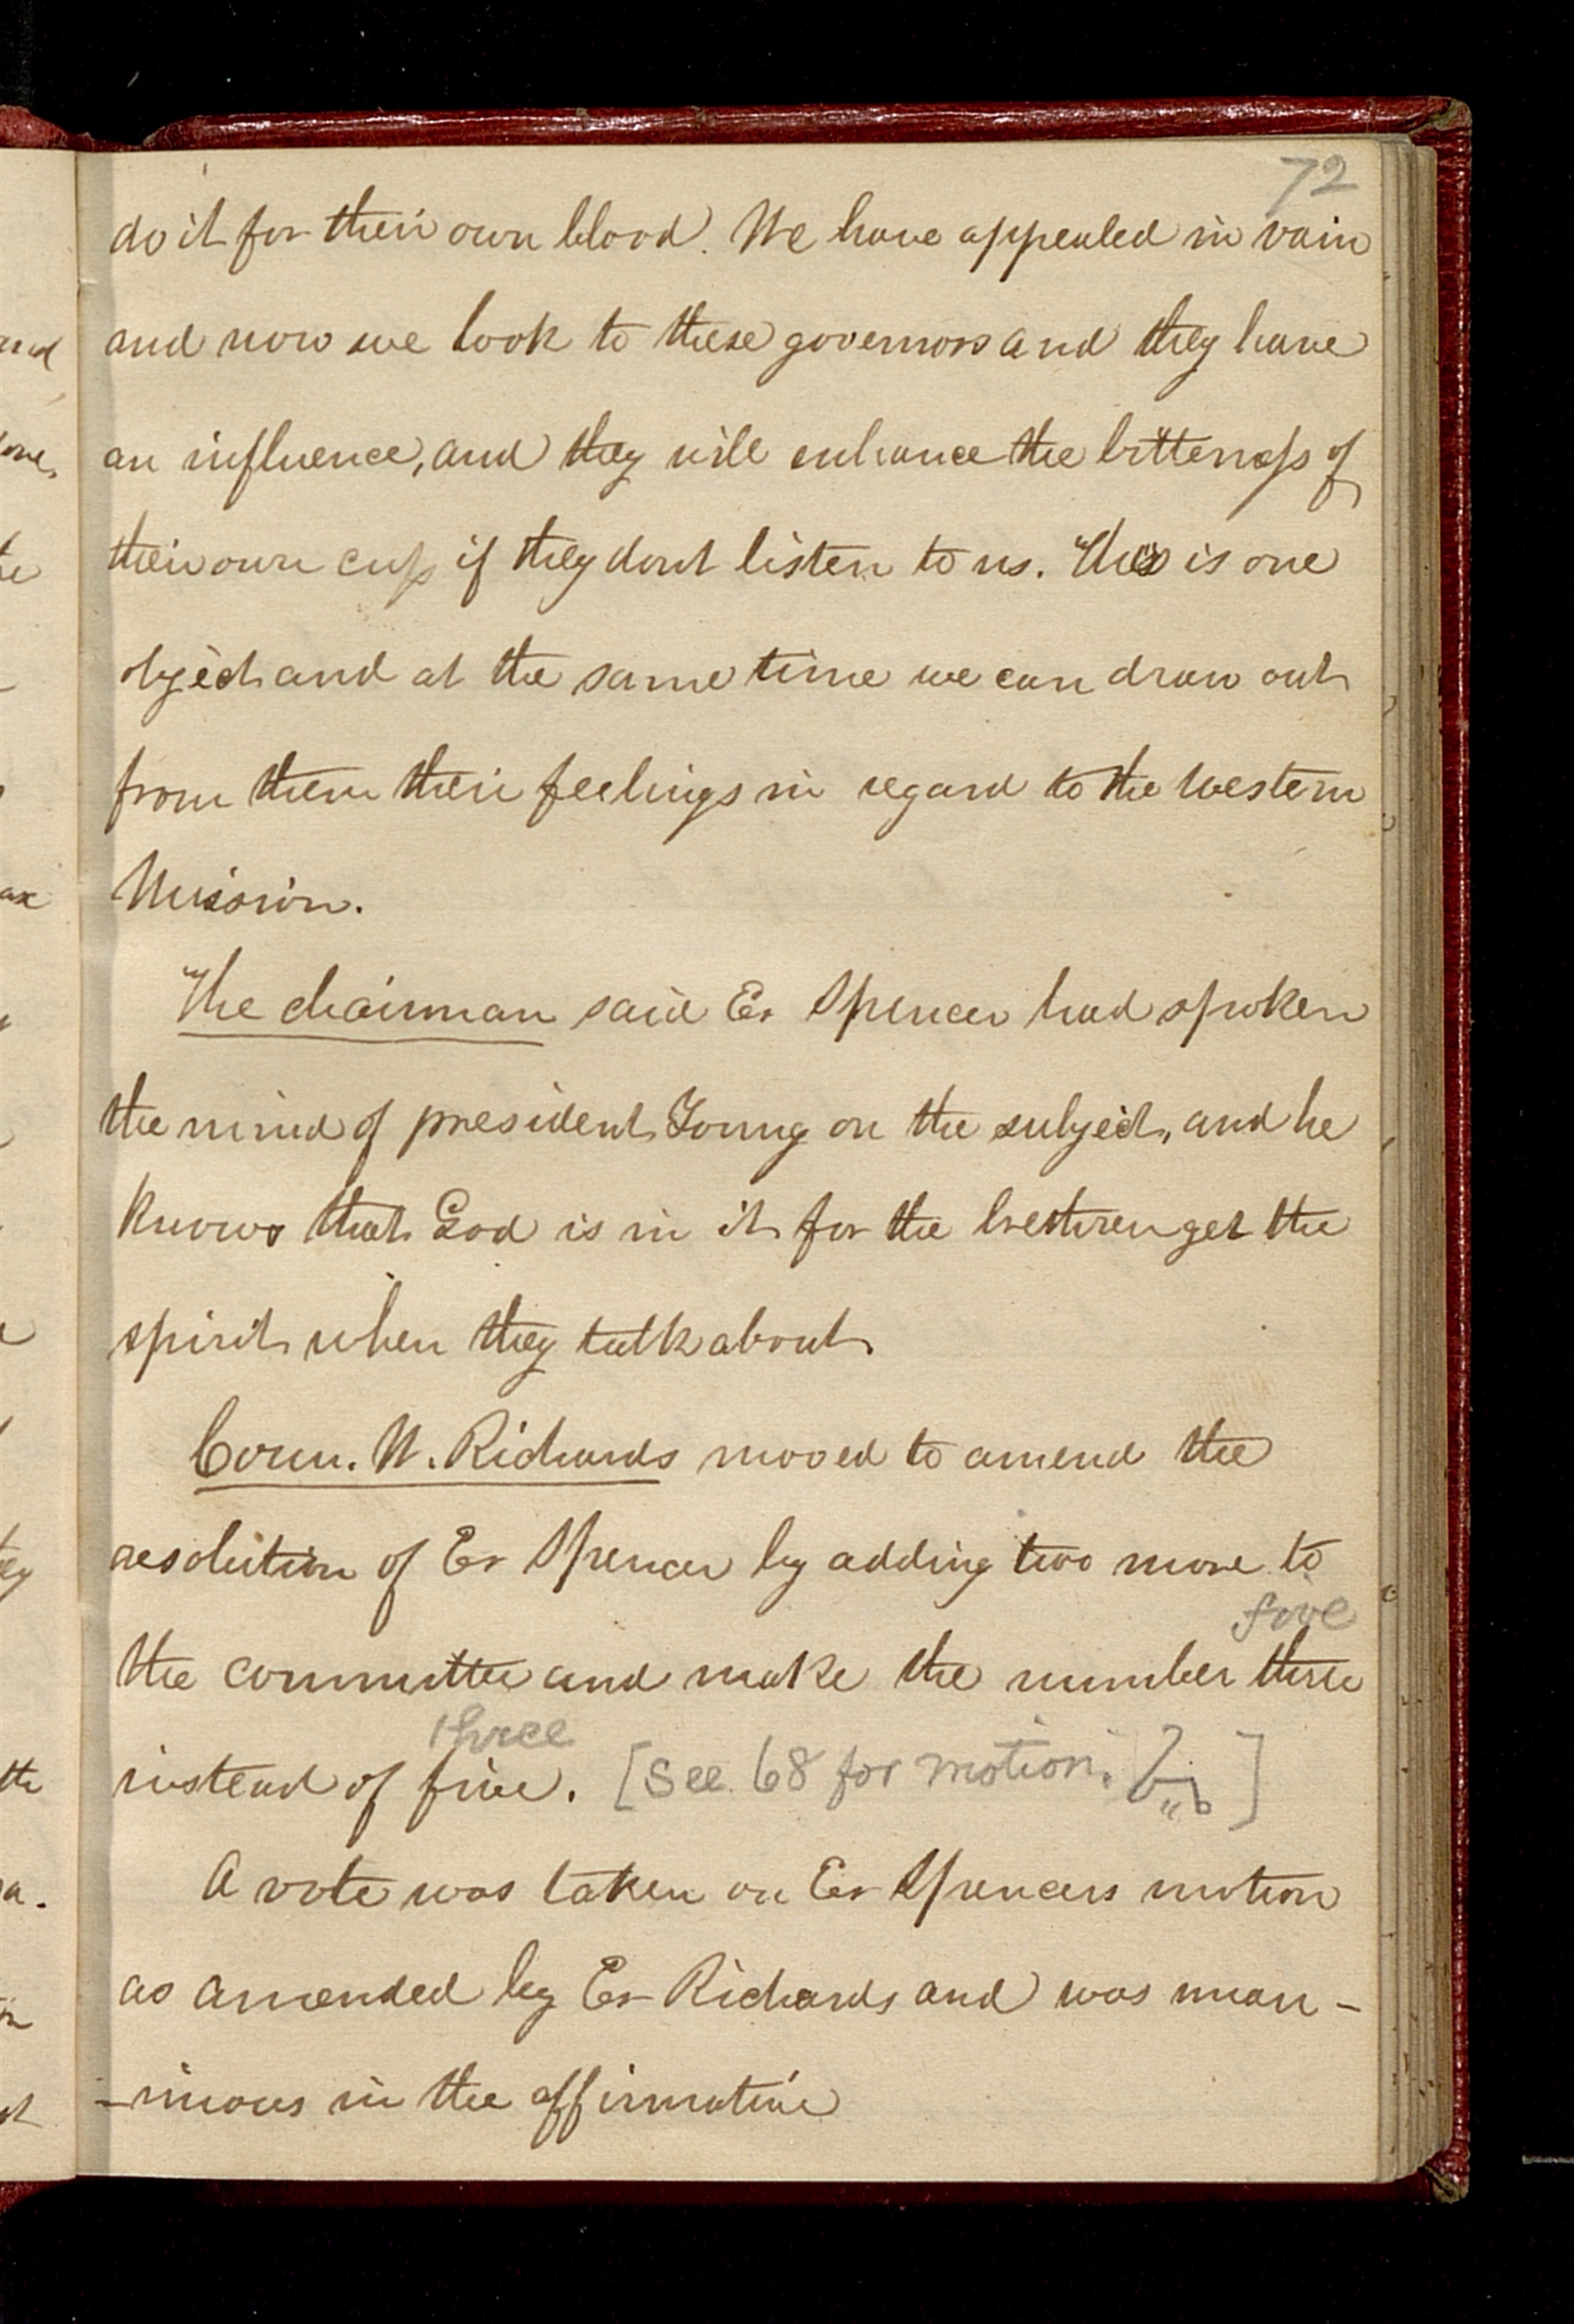 72
do it for their own blood. We have appealed in vain
and now we look to these governors and they have
an influence, and they will enhance the bitterness of
their own cup if they dont listen to us. This is one
object and at the same time we can draw out
from them their feelings in regard to the Western
Mission.
The chairman said Er Spencer had spoken
the mind of president Young on the subject, and he
knows that God is in it for the brethren get the
spirit when they talk about.
Coun. W. Richards moved to amend the
resolution of Er Spencer by adding two more to
five
the committee and make the number three
three
instead of five. [See 68 for motion. ]
A vote was taken on Er Spencers motion
as amended by Er Richards and was unan-
-imous in the affirmative